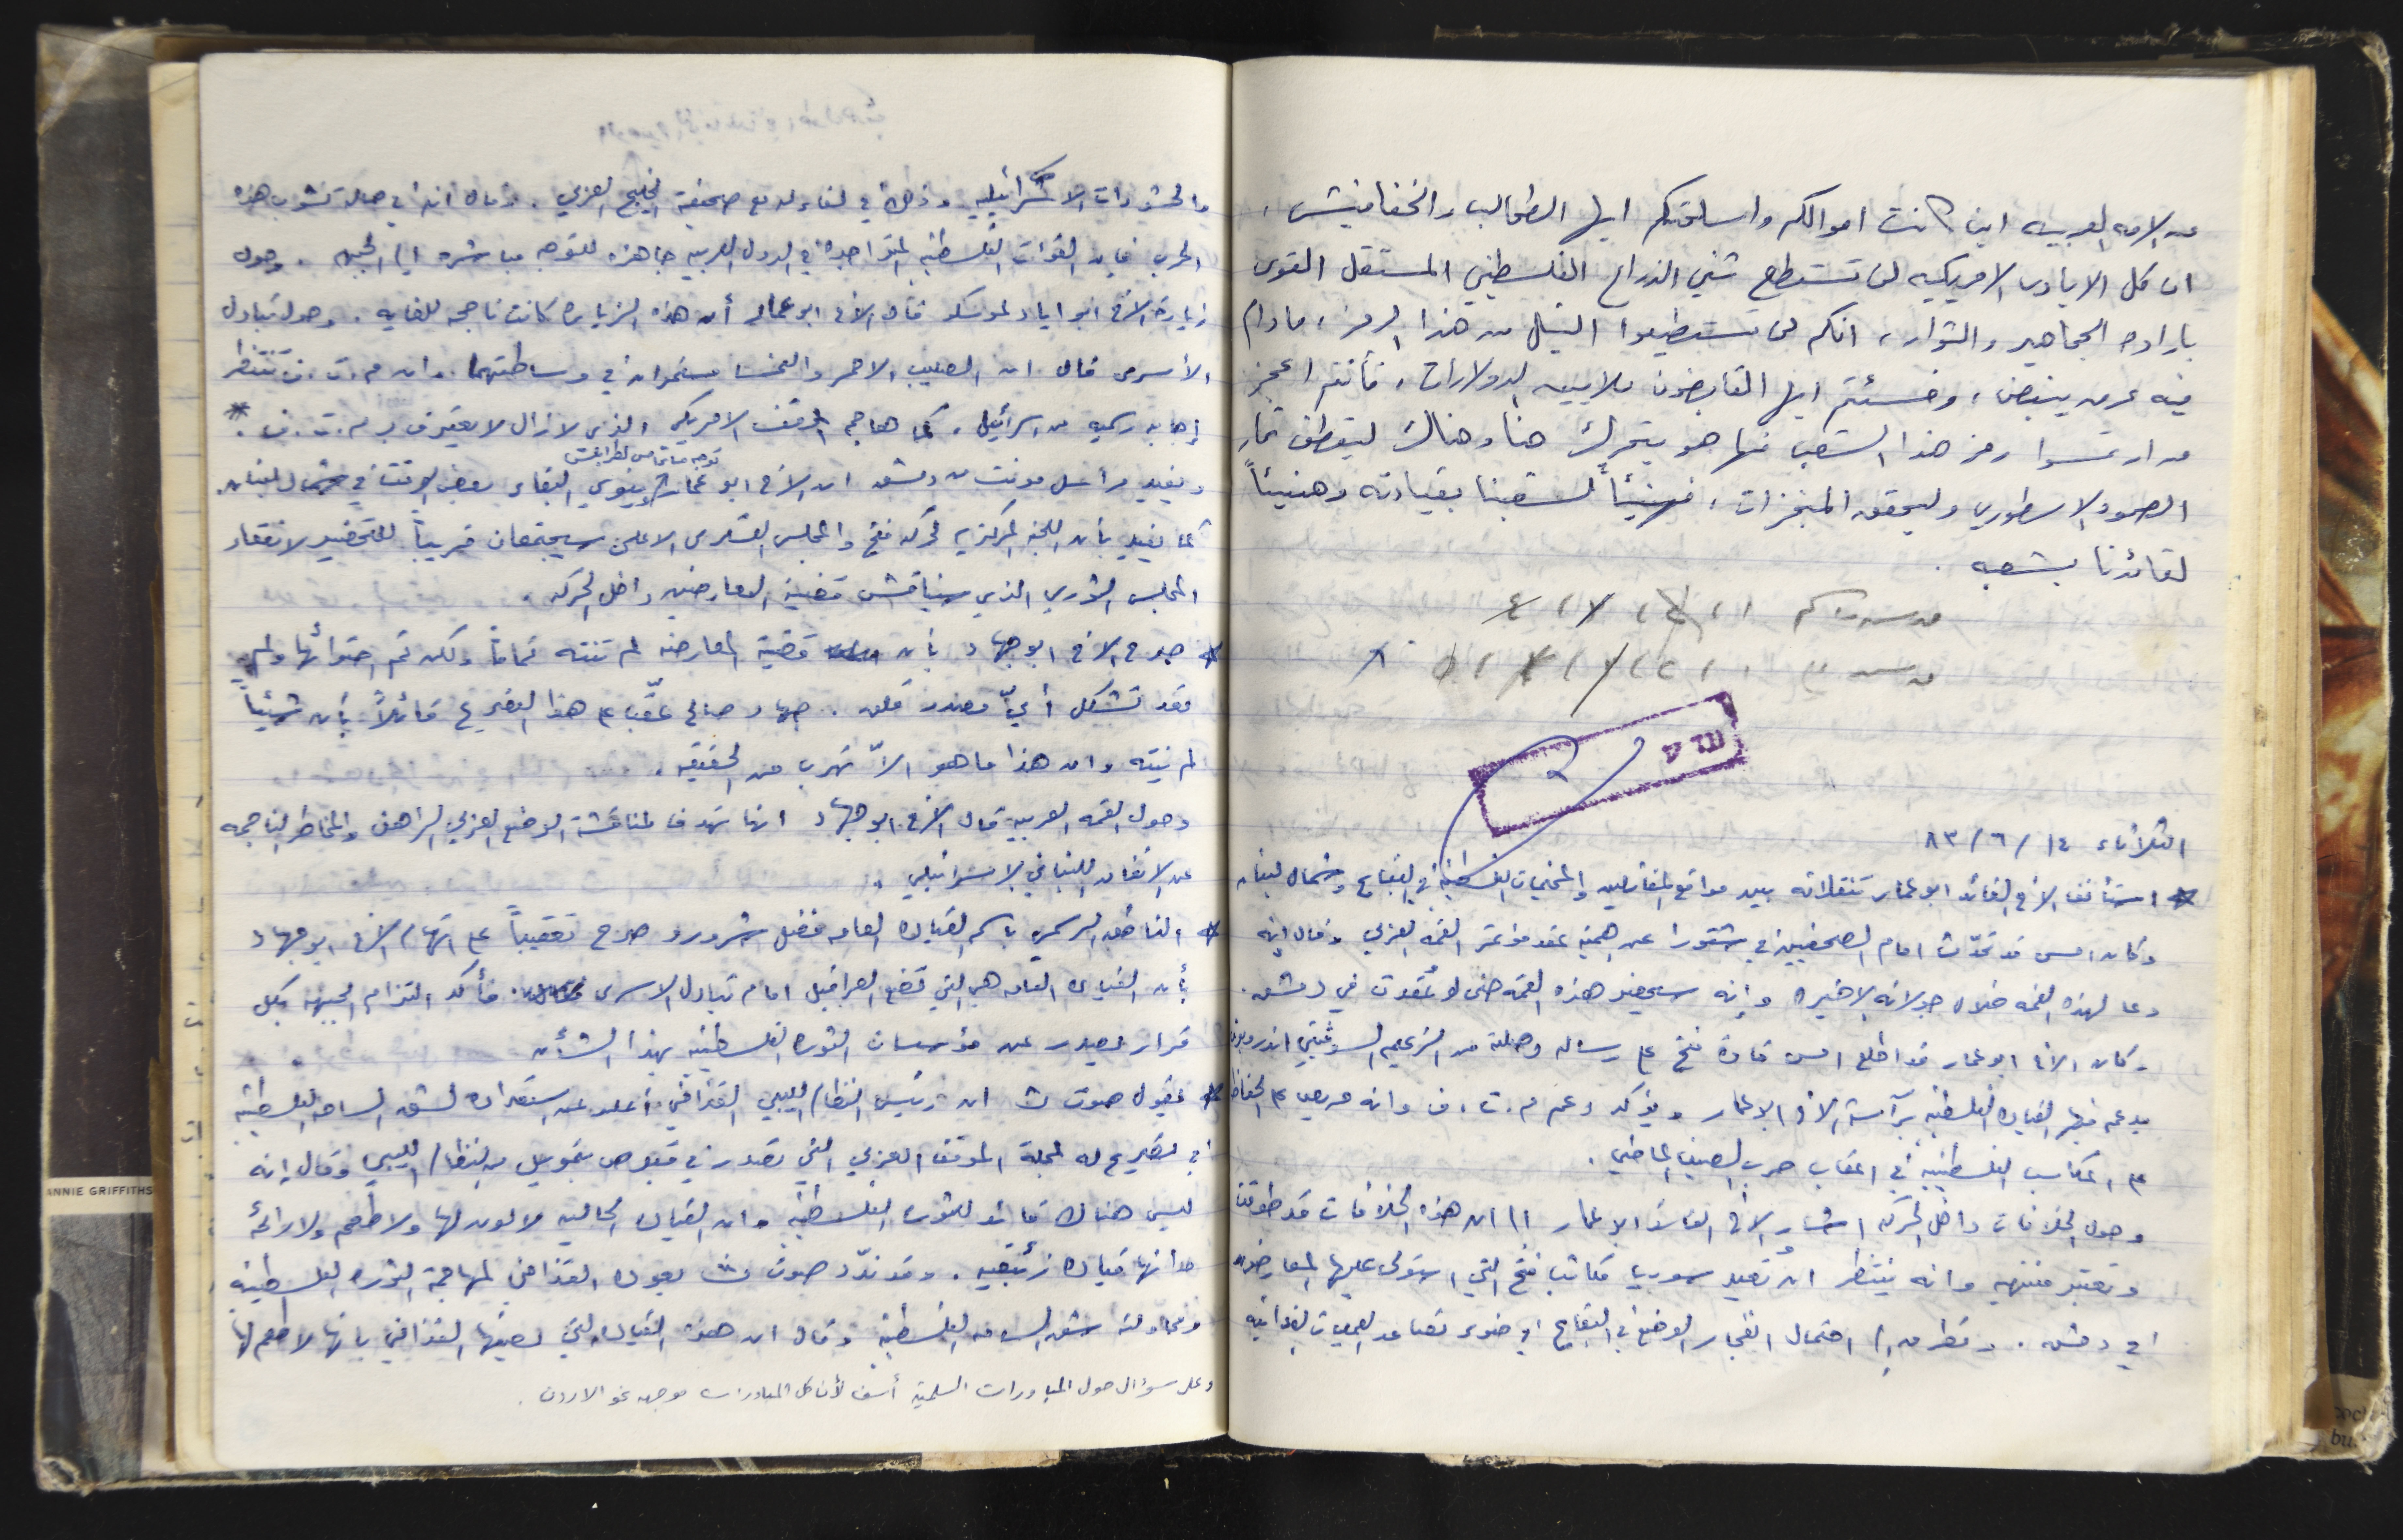 من الامه العربيه اين كانت اموالكم واسلحتكم ايها الطحالب والخفافيش،
ان كل الايادي الامريكيه لن تستطع ثني الذراع الفلسطيني المستقل القوي
باراده الجماهير والثوار، انكم لن تستطيعوا النيل من هذا الرمز، مادام
فيه عرق ينبض، وخسئتم ايها القابضون ملايين الدولارات، فأنتم اعجز
من ان تمسوا رمز هذا الشعب فها هو يتحرك هنا وهناك ليقطف ثمار
الصمود الاسطوري وليحقق المنجزات، فهنيئاً لشعبنا بقيادته وهنيئاً
لقائدنا بشعبه.
الثلاثاء ١٤/٦/٨٣
* استأنف الأخ القائد ابو عمار تنقلاته بين مواقع المقاتلين والمخيمات الفلسطينيه في البقاع وشمال لبنان
وكان امس قد تحدّث امام الصحفيين في شتورا عن اهمية عقد مؤتمر القمه العربي وقال إنه
دعا لهذه القمه خلال جولاته الاخيره وإنه سيحضر هذه القمه حتى لو عُقدت في دمشق.
وكان الأخ ابو عمار قد اطلع امس قادة فتح على رساله وصلته من الزعيم السوفيتي اندروبوف
يدعم فيها القياده الفلسطينيه برآسة الأخ ابو عمار ويؤكد دعم م.ت.ف وانه حريص على الحفاظ
على المكاسب الفلسطينيه في اعقاب حرب الصيف الماضي.
وحول الخلافات داخل الحركه اشار الأخ القائد ابو عمار الى ان هذه الخلافات قد طوقت
وتعتبر منتهيه وانه ينتظر ان تُعيد سوريا مكاتب فتح التي استولى عليها المعارضون
في دمشق. وتطرق الى احتمال انفجار الوضع في البقاع في ضوء تصاعد العمليات الفدائيه
والحشودات الاسرائيليه وذلك في لقاء له مع صحيفة الخليج العربي. وقال انه في حال نشوب هذه
الحرب فإن القوات الفلسطينيه المتواجده في الدول العربيه جاهزه للتوجه مباشره الى الجبهه. وحول
زيارة الأخ ابو اياد لموسكو قال الأخ ابو عمار أن هذه الزياره كانت ناجحه للغايه. وحول تبادل
الأسرى قال ان الصليب الاحمر والنمسا مستمران في وساطتهما. وان م.ت.ف تنتظر
إجابه رسميه من اسرائيل. كما هاجم الموقف الامريكي الذي لازال لا يعترف بـ م.ت.ف. *
توجه صباحا من لطرابلس
ويفيد مراسل مونت من دمشق ان الأخ ابو عمار وينوي البقاء بعض الوقت في شمال لبنان.
كما يفيد بأن اللجنه المركزيه لحركه فتح والمجلس العسكري الاعلى سيجتمعان قريباً للتحضير لانعقاد
المجلس الثوري الذي سيناقش قضية المعارضين داخل الحركه.
* صرح الأخ ابو جهاد بأن قضية المعارضه لم تنته تماماً ولكن تم احتوائها ولم
تعد تشكل أيّ مصدر قلق. جهاد صالح عقّب على هذا التصريح قائلاً بأن شيئاً
لم ينته وان هذا ما هو الاّ تهرب من الحقيقه.
وحول القمه العربيه قال الأخ ابو جهاد انها تهدف لمناقشة الوضع العربي الراهن والمخاطر الناجمه
عن الاتفاق اللبناني الاسرائيلي.
* الناطق الرسمي باسم القياده العامه فضل شرورو صرح تعقيباً على اتهام الأخ ابو جهاد
بأن القياده العامه هي التي تضع العراقيل امام تبادل الاسرى. فأكد التزام الجبهه بكل
قرار يصدر عن مؤسسات الثوره الفلسطينيه بهذا الشأن
* يقول صوت ث ان رئيس النظام الليبي القذافي أعلن عن استعداده لشق الساحه الفلسطينيه
في تصريح له لمجلة الموقف العربي التي تصدر في قبرص بتمويل من النظام الليبي وقال إنه
ليس هناك قائد للثوره الفلسطينيه وان القياده الحاليه لا لون لها ولا طعم ولا رائحة
وانها قياده زئبقيه. وقد ندّد صوت ث بعودة القذافي لمهاجمة الثوره الفلسطينيه
ومحاولته شق الساحه الفلسطينيه وقال ان هذه القياده التي يصفها القذافي بانها لا طعم لها
وعلى سؤال حول المبادرات السلمية أسف لأن كل المبادرات موجهه نحو الاردن.
ANNIE GRIFFITHS